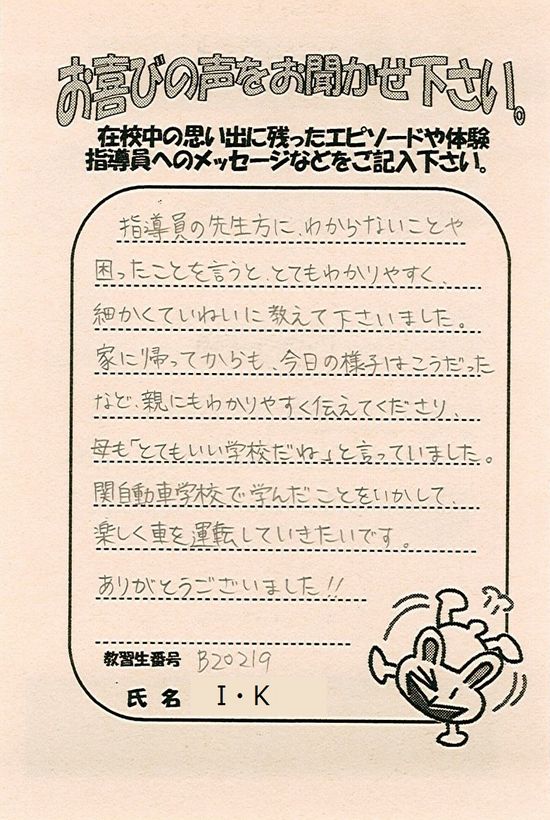 お喜びの声をお聞かせ下さい。
在校中の思い出に残ったエピソードや体験
指導員へのメッセージなどをご記入下さい。
指導員の先生方に、わからないことや
困ったことを言うと、とてもわかりやすく、
細かくていねいに教えて下さいました。
家に帰ってからも、今日の様子はこうだった
など、親にもわかりやすく伝えてくださり、
母も「とてもいい学校だね」と言っていました。
関自動車学校で学んだことをいかして、
楽しく車を運転していきたいです。
ありがとうございました!!
教習生番号 B20219
氏名 I・K